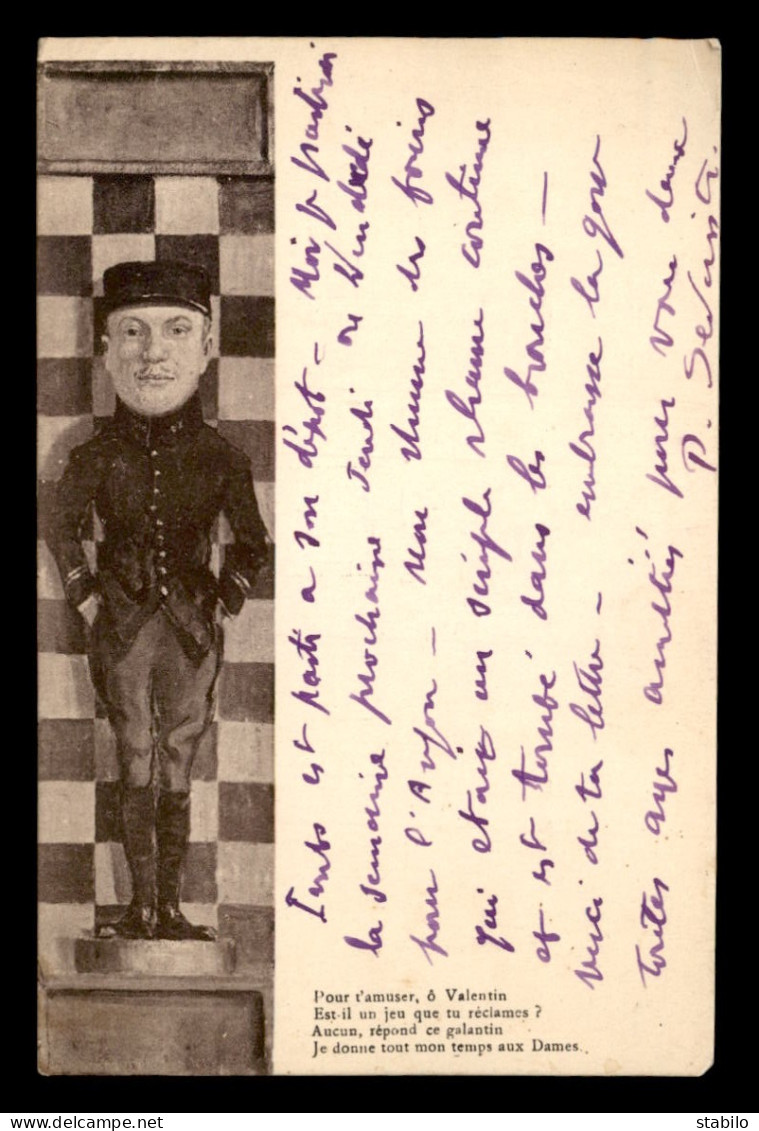 est parti a son dépot – Moi je partirai
la semaine prochaine Jeudi ou Vendredi
pour l'Avyon – mon rhume des foins
qui etait un simple rhume continue
et est tombé dans les bronches –
merci de ta lettre – embrasse la gosse
toutes mes amitiés pour vous deux
P.
Pour t'amuser, ô Valentin
Est-il un jeu que tu réclames ?
Aucun, répond ce galantin
Je donne tout mon temps aux Dames.
stabilo
DELCAMPE.NET